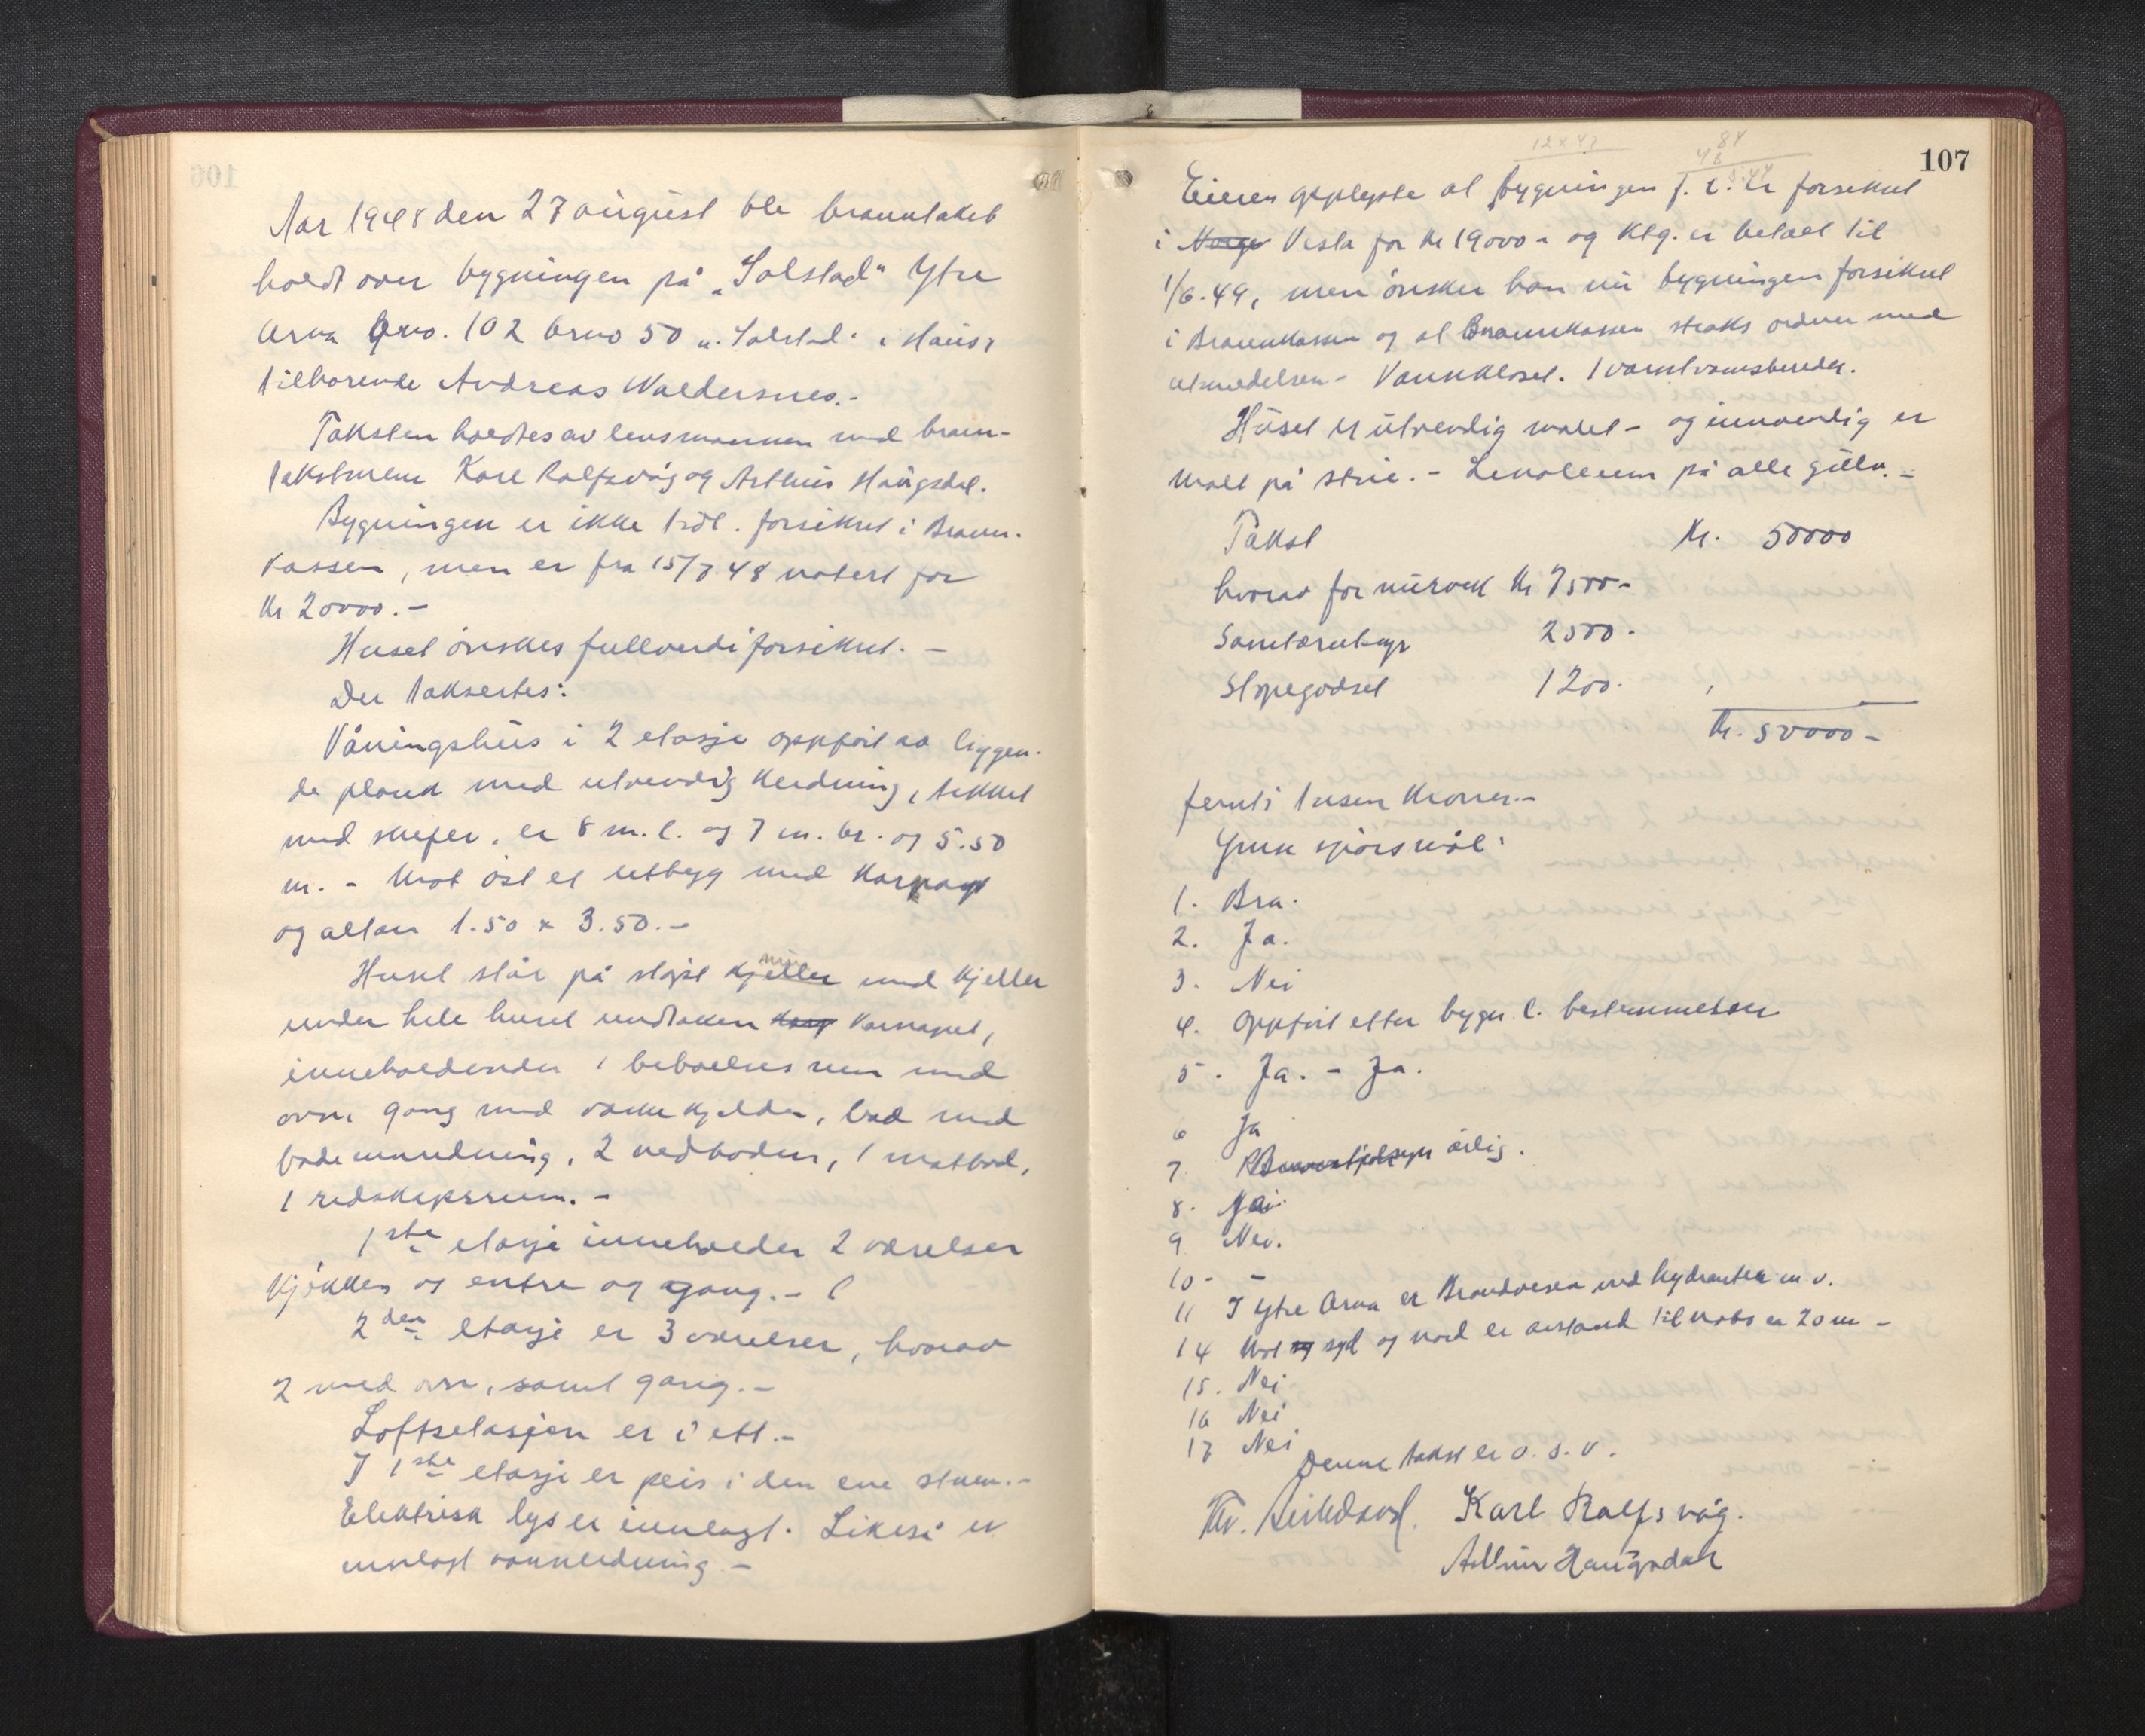 Aar 1948 den 27 august ble branntakst
holdt over bygningen på „Solstad" Ytre
Arna Gno. 102 brno 50 „Solstad" i Haus,
tilhørende Andreas Waldersnes.-
Taksten holdtes av lensmannen med brann-
takstmenn Karl Ralfsvåg og Arthur Haugsdal.
Bygningen er ikke tidl. forsikret i Brann-
kassen, men er fra 15/7.48 notert for
Kr 20000.-
Huset ønskes fullverdiforsikret. -
Der takseertes:
Våningshus i 2 etasje oppført av liggen-
de plank med utvendig kledning, tekket
med skifer, er 8 m. l. og 7 m. br. og 5.50
m. - Mot øst et utbygg med karnapp
og altan 1.50 x 3.50.-
Huset står på støpt kjeller mur med kjeller
under hele huset undtaken karnapet,
inneholdende 1 beboelsesrum med
ovn, gang med vaskekjelder, bad med
badeinnredning, 2 vedboder, 1 matbod,
1 redskapsrum. -
1ste etasje inneholder 2 værelser
kjøkken og entre og gang. -
2den etasje er 3 værelser, hvorav
2 med ovn, samt gang.-
Loftsetasjen er i ett.-
I 1ste etasje er peis i den ene stuen.-
Elektrisk lys er innlagt. Likeså er
innlagt vannledning -
107
12 x 47
84
Eieren opplyste at bygningen f. t. er forsikret
i Norge Vesta for Kr 19000- og Ktg. er betalt til
1/6.49, men ønsker han nu bygningen forsikret
i Brannkassen og at Brannkassen straks ordner med
utmeldelsen- Vannkloset. 1 varmtvannsbereder.
Huset er utvendig malet - og innvendig er
malt på strie. - Linoleum på alle gulv. -
Takst Kr. 50000
hvorav for murverk Kr 7500-
Sanitæranlegg 2500.
Støpegodset 1200.
Kr. 50000-
femti tusen kroner.-
Grunn spørsmål:
1. Bra.
2. Ja.
3. Nei
4. Oppført etter bygn. l. bestemmelser
5. Ja. - Ja.
6 Ja
7 årlig.
8. Nei
9 Nei.
10 - -
11 I Ytre Arna er Brandvesen med hydranter m. v.
14 Mot og syd og nord er avstand til nabo er 20 m -
15. Nei
16 Nei
17 Nei
Denne takst er o. s. v.
Karl Ralfsvåg.
Arthur Haugsdal